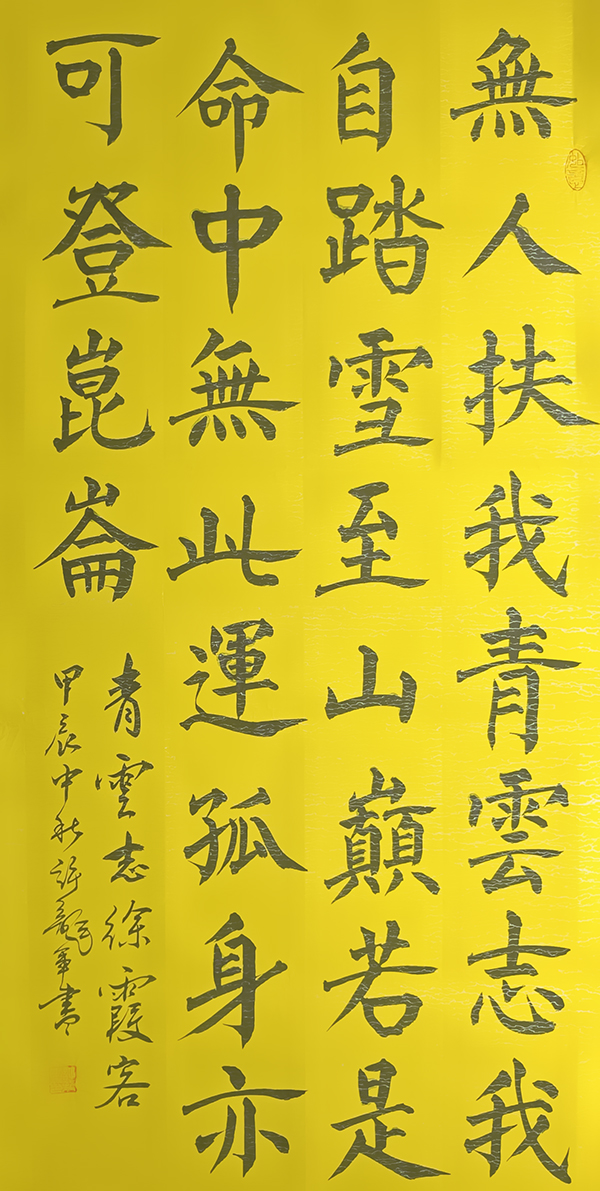 無人扶我青雲志我
自踏雪至山巔若是
命中無此運孤身亦
可登崑崙
青雲志徐霞客
甲辰中秋許龍軍書